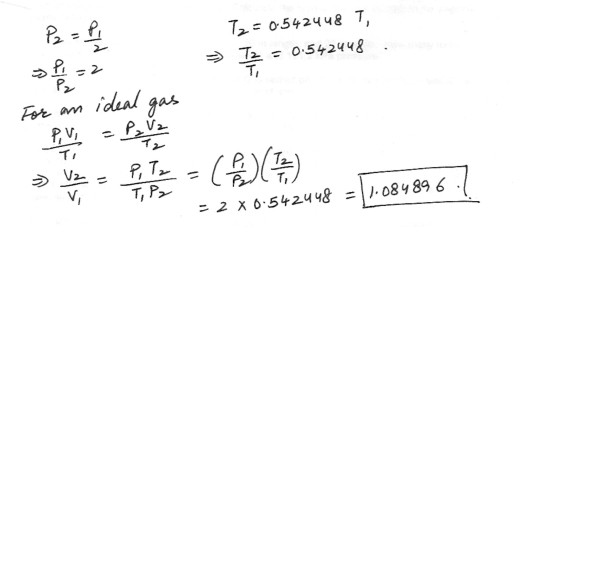 P₂ = P₁/2
T₂ = 0.542448 T₁
⇒ P₁/P₂ = 2
⇒ T₂/T₁ = 0.542448 .
For an ideal gas
P₁V₁/T₁ = P₂V₂/T₂
⇒ V₂/V₁ = P₁T₂/T₁P₂ = (P₁/P₂)(T₂/T₁)
= 2 × 0.542448 = 1.084896 .